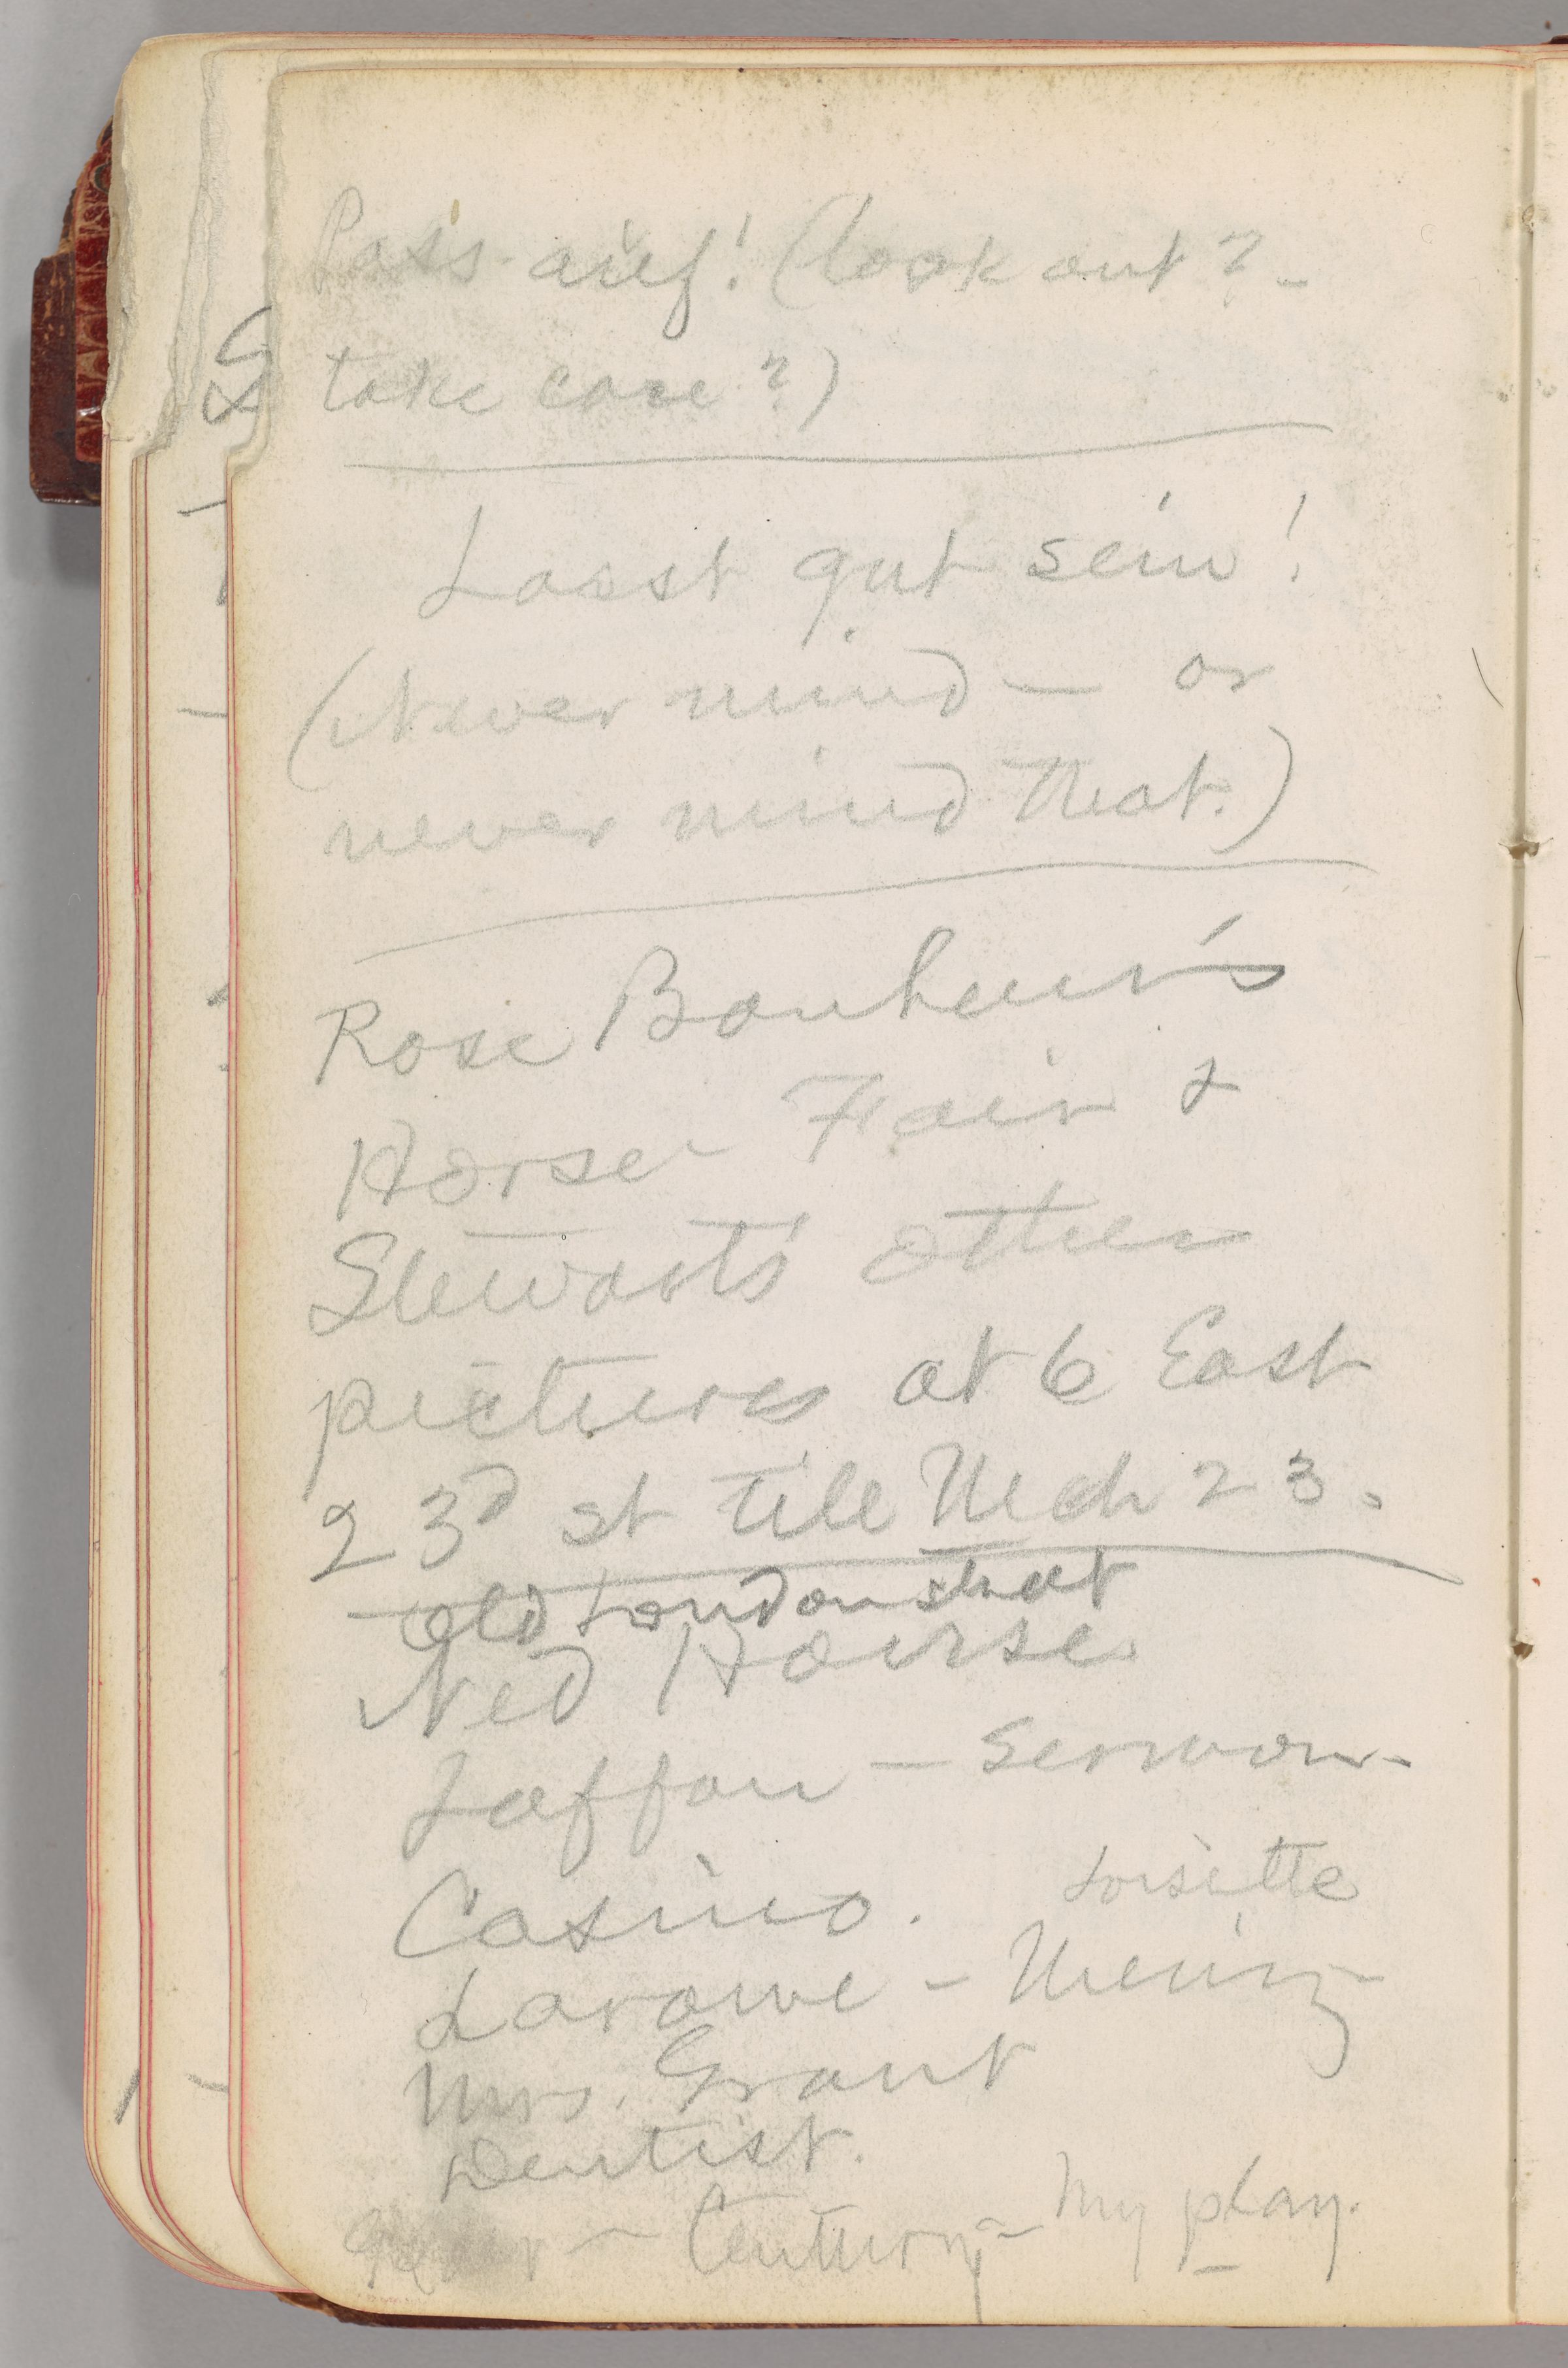 Pass auf! (look out? -
take care?)
Lasst gut sein!
(Never mind — or
never mind that.)
Rose Bonheur's
Horse Fair &
Stewart's other
pictures at 6 East
23d st till Mch 23.
Old London street
Ned House
Laffan — Sermon -
Casino. Loisette
Larowe -
Mrs. Grant
Dentist.
— Century — My play.